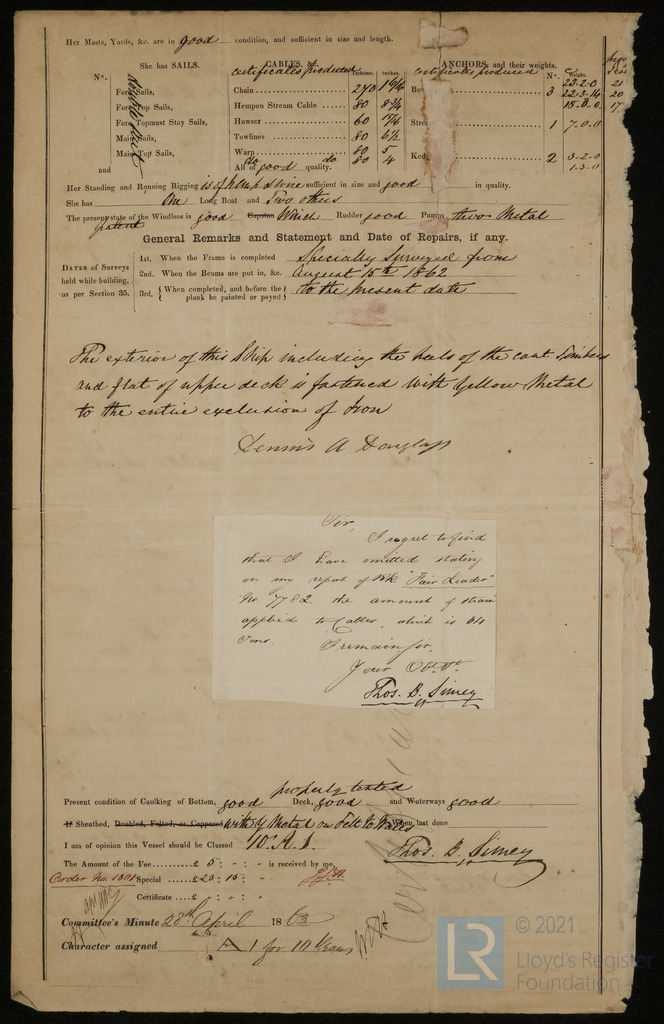 Her Masts, Yards, &c. are in good condition, and sufficient in size and length.
She has SAILS.
N°.
Fore Sails,
Fore Top Sails,
Fore Topmast Stay Sails,
Main Sails,
Main Top Sails,
and
CABLES, &c.
certificates produced
Fathoms. Inches.
Chain 270
Hempen Stream Cable 80 8¾
Hawser 60
Towlines 80 6½
Warp 80 5
do do 80 4
All of good quality.
ANCHORS, and their weights.
certificates produced
N°. Weights.
Bow 3 23-2-0 21
22-3-14 20
18-0-0 17
1 7-0-0
2 3-2-0
1-3-0
Her Standing and Running Rigging is of hemp & wire sufficient in size and good in quality.
She has One Long Boat and Two others
The present state of the Windlass is good Capstan Winch Rudder good Pumps two Metal
patent
General Remarks and Statement and Date of Repairs, if any.
DATES of Surveys held while building, as per Section 35.
1st. When the Frame is completed Specially Surveyed from
2nd. When the Beams are put in, &c. August 15th 1862
3rd. { When completed, and before the plank be painted or payed } to the present date
The exterior of this Ship including the heels of the cant Timbers
and flat of upper deck is fastened with Yellow Metal
to the entire exclusion of Iron
Dennis A Douglass
Sir,
I regret to find
that I have omitted stating
on my report of Bk "Fair Leader"
No. 7782 the amount of strain
applied to Cables, which is 64
Tons. I remain Sir,
Your Obt. St.
Thos. B. Simey
properly tested
Present condition of Caulking of Bottom, good Deck, good and Waterways good
If Sheathed, Doubled, Felted, or Coppered with Y Metal on Felt to Wales When last done
I am of opinion this Vessel should be Classed 10. A. 1.
Thos. B. Simey
The Amount of the Fee.....£ 5 : - : - is received by me,
Order No. 1801 Special .....£ 20 : 15 : -
Certificate ....£ - : - : -
Committee's Minute 28th April 1863
Character assigned A 1 for 10 Years
LR
© 2021
Lloyd's Register
Foundation